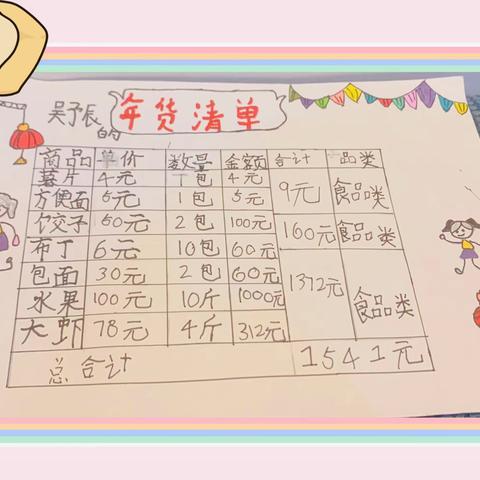 吴予辰的
年货清单
商品 单价 数量 金额 合计 品类
薯片 4元 1包 4元 9元 食品类
方便面 5元 1包 5元
饺子 50元 2包 100元 160元 食品类
布丁 6元 10包 60元
包面 30元 2包 60元 1372元 食品类
水果 100元 10斤 1000元
大虾 78元 4斤 312元
总合计 1541元